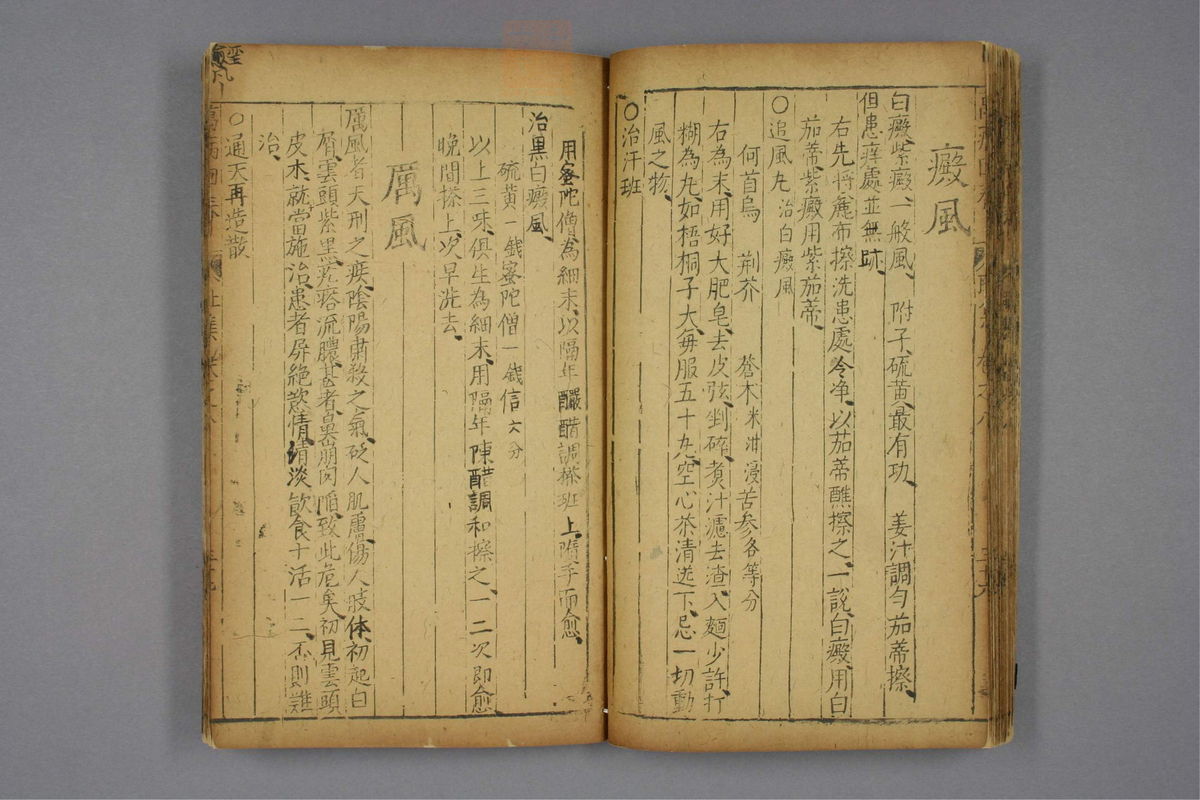 癜風
白癜紫癜一般風 附子硫黃最有功 姜汁調勻茄蒂擦
但患痒處並無跡
右先將麄布擦洗患處令净以茄蒂蘸擦之一說白癜用白
茄蒂紫癜用紫茄蒂
○追風丸 治白癜風
何首烏 荆芥 蒼木 米泔浸 苦參各等分
右為末用好大肥皂去皮弦剉碎煮汁濾去渣入麵少許打
糊為丸如梧桐子大每服五十丸空心茶清送下忌一切動
風之物
○治汗班
用蜜陀僧為細末以隔年釅醋調搽班上隨手而愈
治黑白癜風
硫黃一錢蜜陀僧一錢信六分
以上三味俱生為細末用隔年陳醋調和擦之一二次即愈
晚間搽上次早洗去
厲風
厲風者天刑之疾陰陽肅殺之氣砭人肌膚傷人肢体初起白
屑雲頭紫黑疙瘩流膿甚者鼻崩肉陷致此危矣初見雲頭
皮木就當施治患者屏絶慾情清淡飲食十活一二否則難
治
○通天再造散